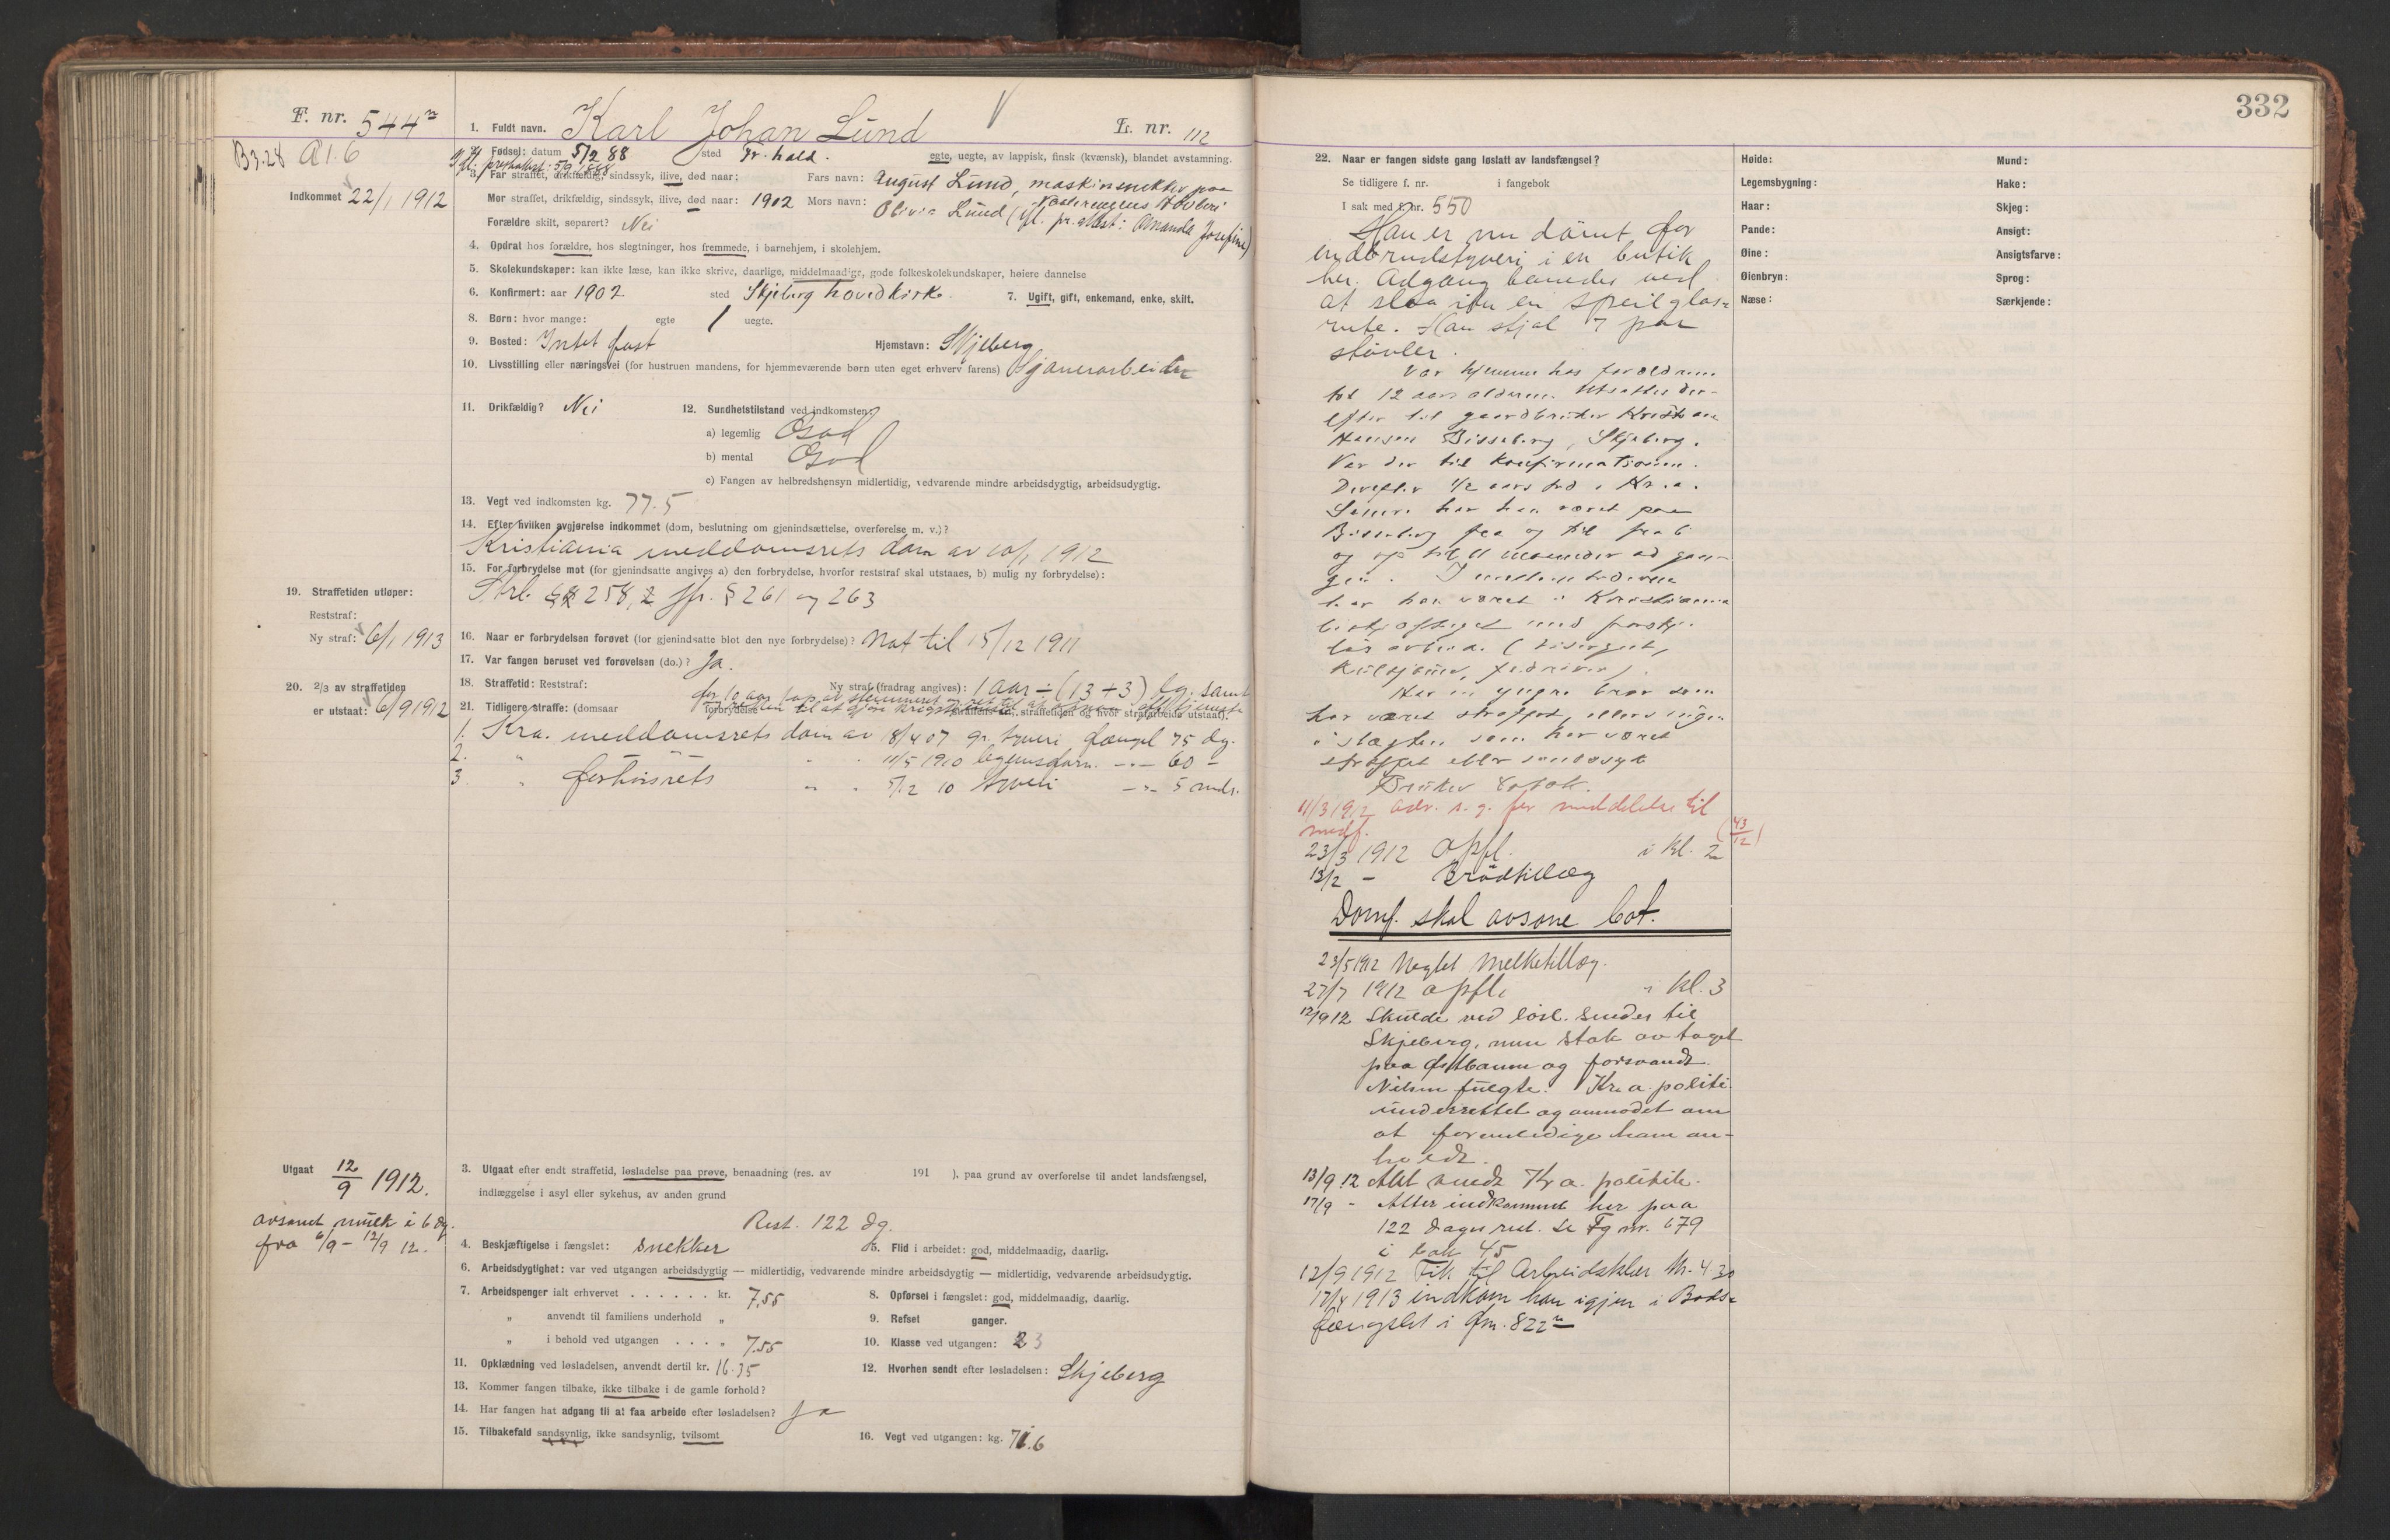 F. nr. 544
B3.28 A 1.6
Indkommet 22/1 1912
1. Fuldt navn. Karl Johan Lund L. nr. 112
2. Fødsel: datum 5/2 88 sted Fr.hald. egte, uegte, av lappisk, finsk (kvænsk), blandet avstamning.
3. Far straffet, drikfældig, sindssyk, ilive, død naar: Fars navn: August Lund, maskinsnekker paa
Mor straffet, drikfældig, sindssyk, ilive, død naar: 1902 Mors navn: Olivia Lund (ifl. pr.attest: Amanda Josefine)
Forældre skilt, separert? Nei
4. Opdrat hos forældre, hos slegtninger, hos fremmede, i barnehjem, i skolehjem.
5. Skolekundskaper: kan ikke læse, kan ikke skrive, daarlige, middelmaadige, gode folkeskolekundskaper, høiere dannelse
6. Konfirmert: aar 1902 sted Skjeberg hovedkirke. 7. Ugift, gift, enkemand, enke, skilt.
8. Børn: hvor mange: egte / uegte.
9. Bosted: Intet fast Hjemstavn: Skjeberg
10. Livsstilling eller næringsvei (for hustruen mandens, for hjemmeværende børn uten eget erhverv farens) Sjauerarbeider
11. Drikfældig? Nei 12. Sundhetstilstand ved indkomsten:
a) legemlig God
b) mental God
c) Fangen av helbredshensyn midlertidig, vedvarende mindre arbeidsdygtig, arbeidsudygtig.
13. Vegt ved indkomsten kg. 77.5
14. Efter hvilken avgjørelse indkommet (dom, beslutning om gjenindsættelse, overførelse m. v.)?
Kristiania meddomsrets dom av 10/1 1912
15. For forbrydelse mot (for gjenindsatte angives a) den forbrydelse, hvorfor reststraf skal utstaaes, b) mulig ny forbrydelse):
Strl. § 258, 2 jfr. § 261 og 263
19. Straffetiden utløper:
Reststraf:
Ny straf: 6/1 1913
16. Naar er forbrydelsen forøvet (for gjenindsatte blot den nye forbrydelse)? Nat til 15/12 1911
17. Var fangen beruset ved forøvelsen (do.)? Ja.
18. Straffetid: Reststraf: Ny straf (fradrag angives): 1 aar ÷ (13 + 3) dg. samt
20. 2/3 av straffetiden
er utstaat: 6/9 1912
21. Tidligere straffe: (domsaar forbrydelse straffetiden og hvor strafarbeide utstaat).
1. Kra. meddomsrets dom av 18/4 07 gr. tyveri fængsel 75 dg.
2. " " " 11/5 1910 legemsforn. -"- 60 -
3. " forhørsrets " " 5/12 10 tyveri -"- 5 mdr.
Utgaat 12/9 1912.
avsonet mulk i 6 dg.
fra 6/9 - 12/9 12.
3. Utgaat efter endt straffetid, løsladelse paa prøve, benaadning (res. av 191 ), paa grund av overførelse til andet landsfængsel,
indlæggelse i asyl eller sykehus, av anden grund
Rest. 122 dg.
4. Beskjæftigelse i fængslet: snekker 5. Flid i arbeidet: god, middelmaadig, daarlig.
6. Arbeidsdygtighet: var ved utgangen arbeidsdygtig — midlertidig, vedvarende mindre arbeidsdygtig — midlertidig, vedvarende arbeidsudygtig.
7. Arbeidspenger ialt erhvervet . . . . . . kr. 7,55 8. Opførsel i fængslet: god, middelmaadig, daarlig.
" anvendt til familiens underhold " 9. Refset ganger.
" i behold ved utgangen . . . . " 7.55 10. Klasse ved utgangen: 3
11. Opklædning ved løsladelsen, anvendt dertil kr. 16.35 12. Hvorhen sendt efter løsladelsen: Skjeberg
13. Kommer fangen tilbake, ikke tilbake i de gamle forhold?
14. Har fangen hat adgang til at faa arbeide efter løsladelsen? Ja
15. Tilbakefald sandsynlig, ikke sandsynlig, tvilsomt 16. Vegt ved utgangen: kg. 71.6
332
22. Naar er fangen sidste gang løslatt av landsfængsel?
Se tidligere f. nr. i fangebok
I sak med f. nr. 550
Han er nu dømt for
indbrudstyveri i en butik
her. Adgang banedes ved
at slaa inn en speilglas-
rute. Han stjal 7 par
støvler.
Var hjemme hos forældrene
til 12 aars alderen. Utsattes der-
efter til gaardbruker Kristian
Hansen Bisseberg, Skjeberg.
Var der til konfirmationen.
Derefter 1/2 aars tid i Kr.a.
Senere har han været paa
Bisseberg fra og til fra 6
og op til 11 maaneder ad gan-
gen. I mellemtiderne
har han været i Kristiania
beskjæftiget med forskjel-
lig arbeide
Har en yngre bror som
har været straffet, ellers ingen
i slægten som har været
straffet eller sindssyk
Bruker tobak.
11/3 1912 adv. s. g. for meddelelse til
medf. (43/12)
23/3 1912 Opfl. i kl. 2
13/2 - Brødtillæg
Domf. skal avsone bot.
23/5 1912 Negtet Melketillæg.
27/7 1912 opfl. i kl. 3
12/9 12 Skulde ved løsl. sendes til
Skjeberg, men stak av toget
paa Østbanen og forsvandt.
Nilsen fulgte. Kr.a. politi
underrettet og anmodet om
at foranledige ham an-
holdt.
13/9 12 Akt sendt Kr.a. politik.
17/9 - Atter indkommet her paa
122 dages rest. Se Fg nr. 679
i bok 45
12/9 1912 Fik til Arbeidsklær Kr. 4.30
17/4 1913 indkom han igjen i Bods-
fængslet i fnr. 822
Høide: Mund:
Legemsbygning: Hake:
Haar: Skjeg:
Pande: Ansigt:
Øine: Ansigtsfarve:
Øienbryn: Sprog:
Næse: Særkjende: